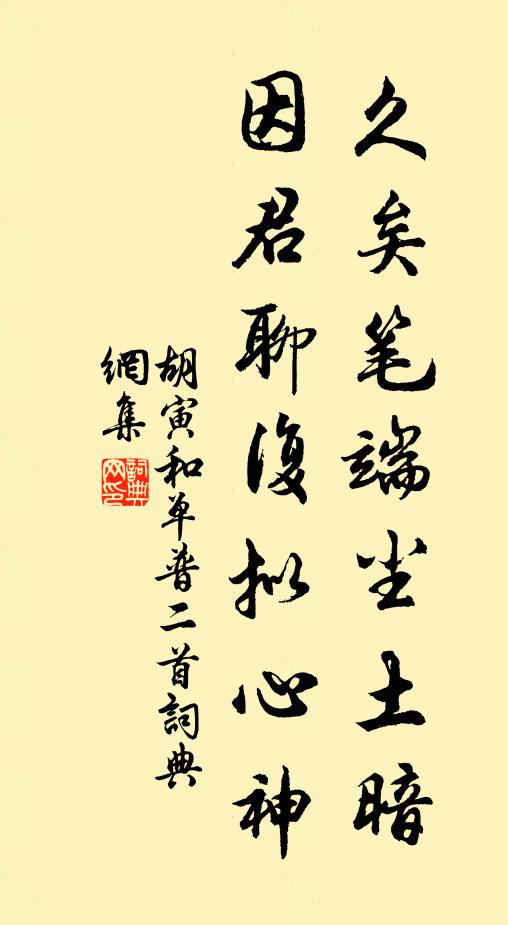 久矣笔端尘土暗
因君聊复拟心神
胡寅和单普二首詞典
網集
詞典
网印